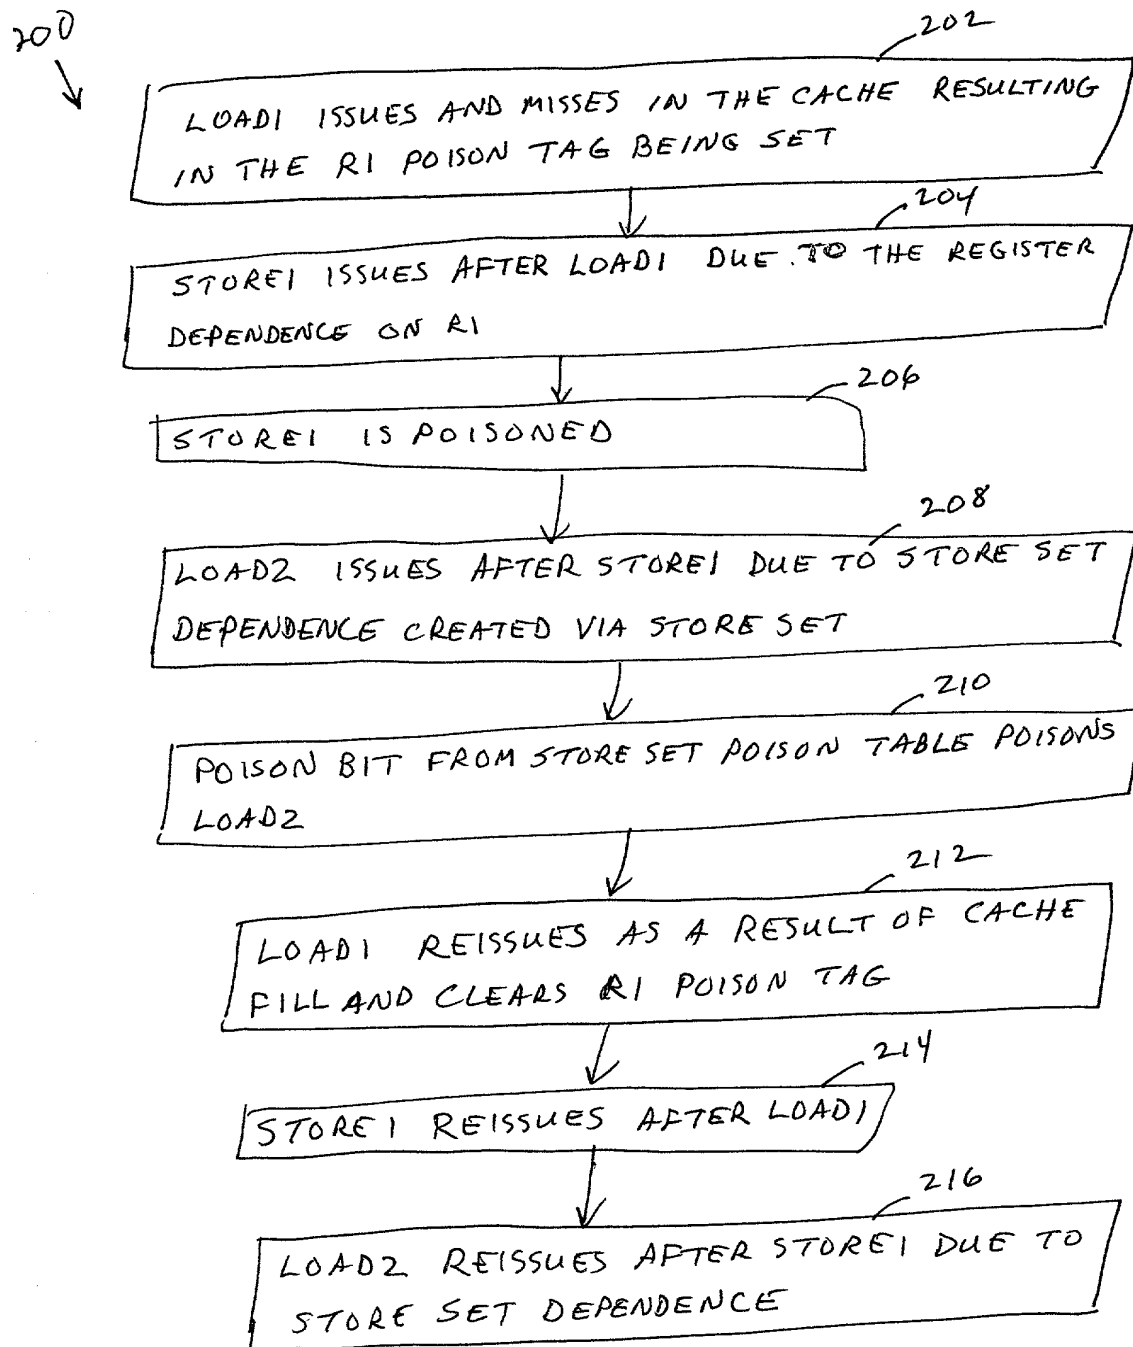 200
202
LOAD1 ISSUES AND MISSES IN THE CACHE RESULTING
IN THE R1 POISON TAG BEING SET
204
STORE1 ISSUES AFTER LOAD1 DUE TO THE REGISTER
DEPENDENCE ON R1
206
STORE1 IS POISONED
208
LOAD2 ISSUES AFTER STORE1 DUE TO STORE SET
DEPENDENCE CREATED VIA STORE SET
210
POISON BIT FROM STORE SET POISON TABLE POISONS
LOAD2
212
LOAD1 REISSUES AS A RESULT OF CACHE
FILL AND CLEARS R1 POISON TAG
214
STORE1 REISSUES AFTER LOAD1
216
LOAD2 REISSUES AFTER STORE1 DUE TO
STORE SET DEPENDENCE